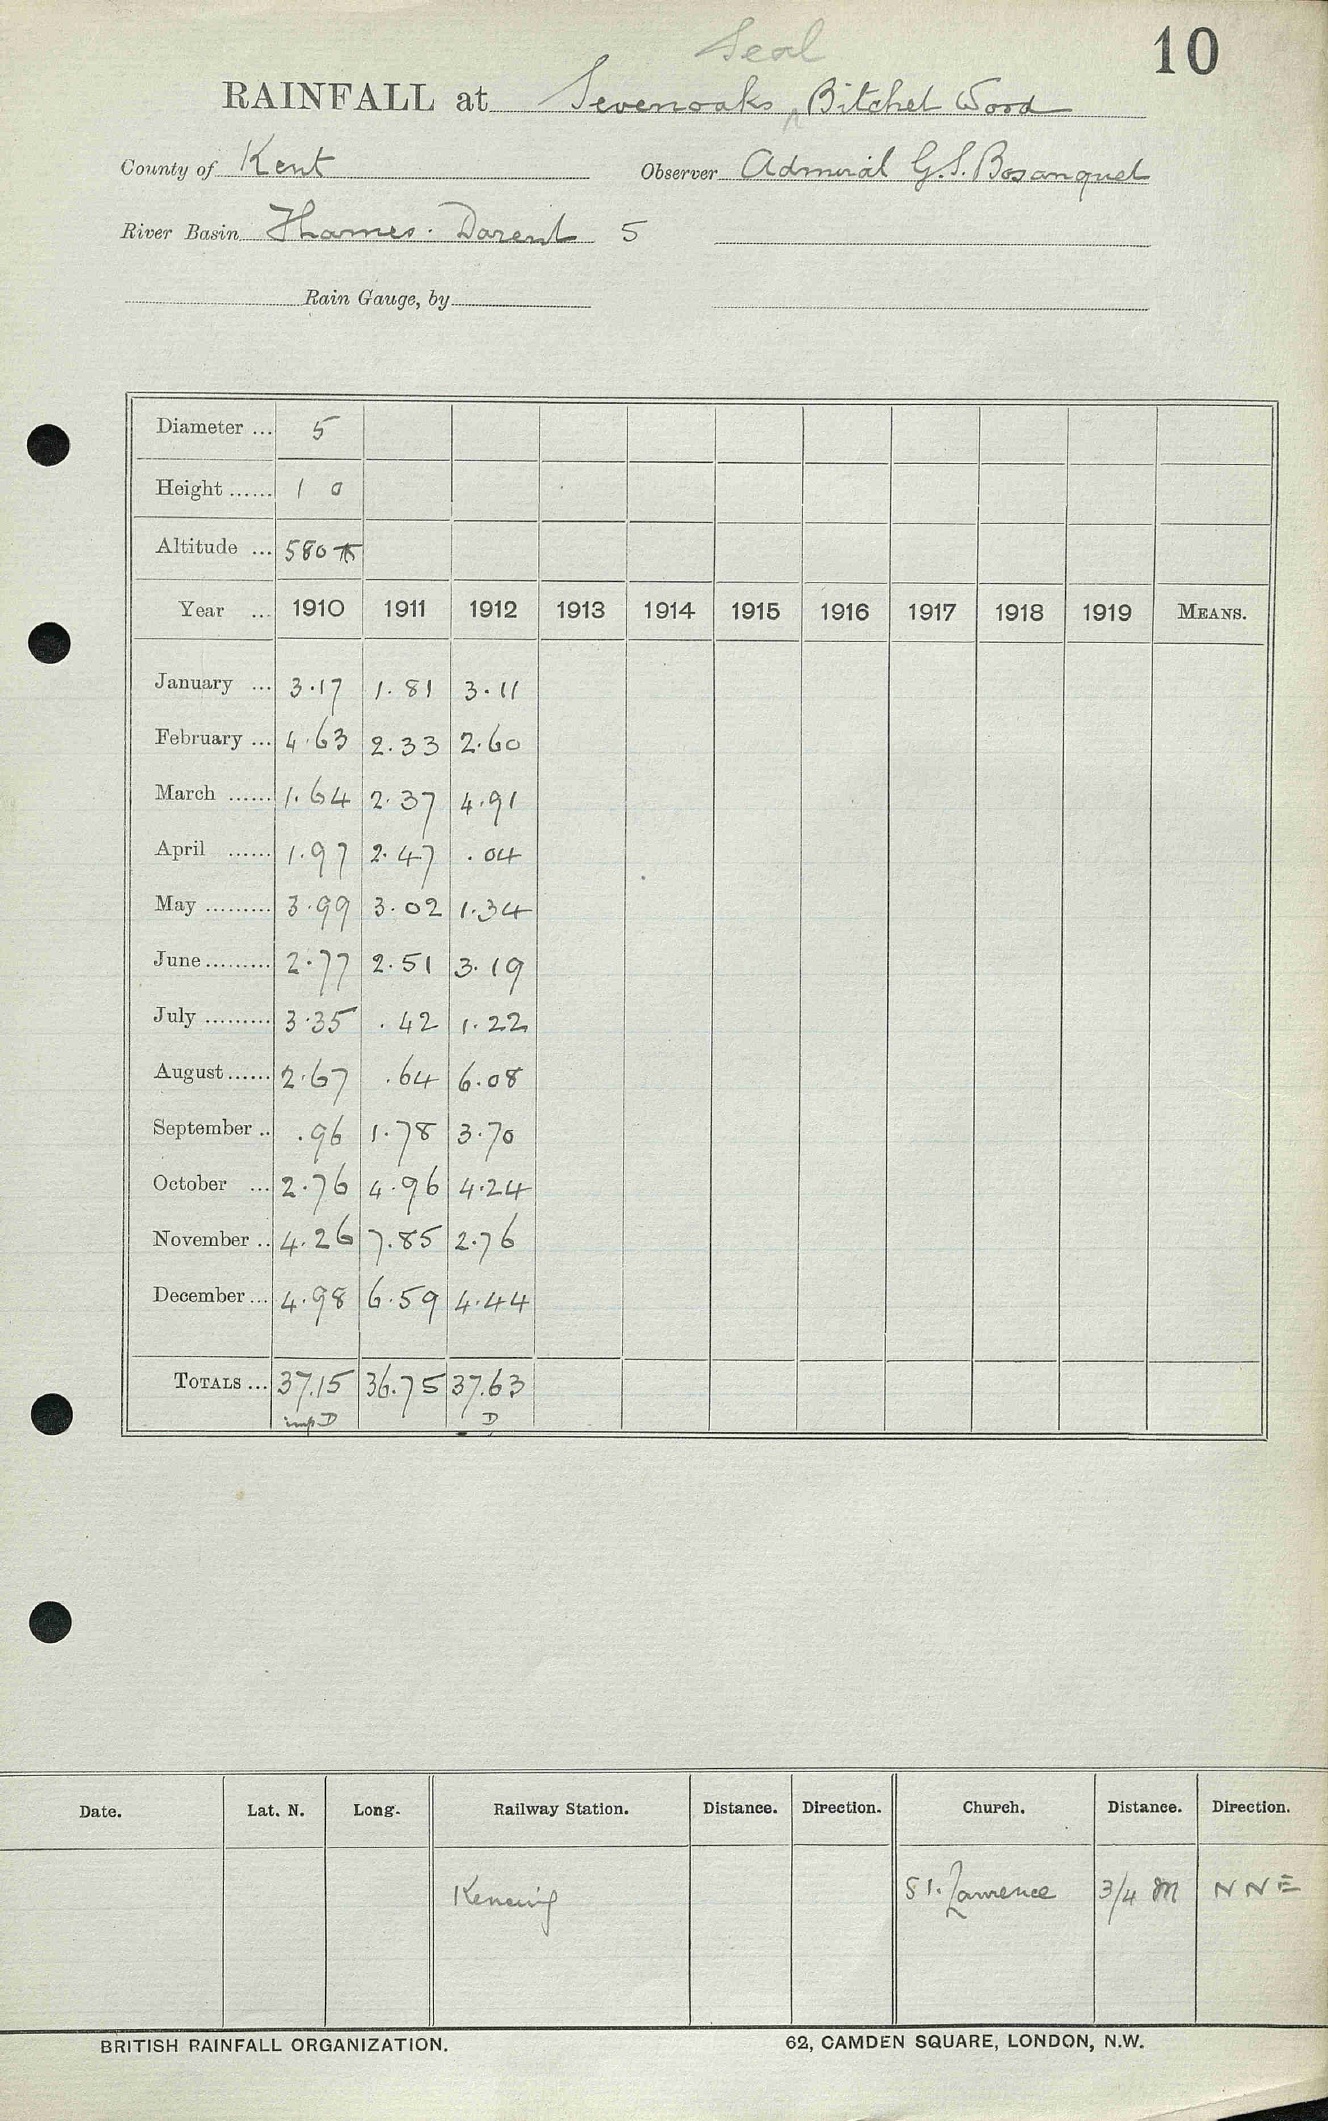 10
Seal
RAINFALL at Sevenoaks, Bitchet Wood
County of Kent Observer Admiral G.S. Bosanquet
River Basin Thames. Darent 5
Rain Gauge, by
Diameter ... 5
Height ...... 1 0
Altitude ... 580
Year ... 1910 1911 1912 1913 1914 1915 1916 1917 1918 1919 MEANS.
January ... 3.17 1.81 3.11
February ... 4.63 2.33 2.60
March ...... 1.64 2.37 4.91
April ...... 1.97 2.47 .04
May ......... 3.99 3.02 1.34
June ......... 2.77 2.51 3.19
July ......... 3.35 .42 1.22
August ...... 2.67 .64 6.08
September .. .96 1.78 3.70
October ... 2.76 4.96 4.24
November .. 4.26 7.85 2.76
December ... 4.98 6.59 4.44
TOTALS ... 37.15 36.75 37.63
imp D D
Date. Lat. N. Long. Railway Station. Distance. Direction. Church. Distance. Direction.
St. Lawrence 3/4 M NNE
BRITISH RAINFALL ORGANIZATION. 62, CAMDEN SQUARE, LONDON, N.W.